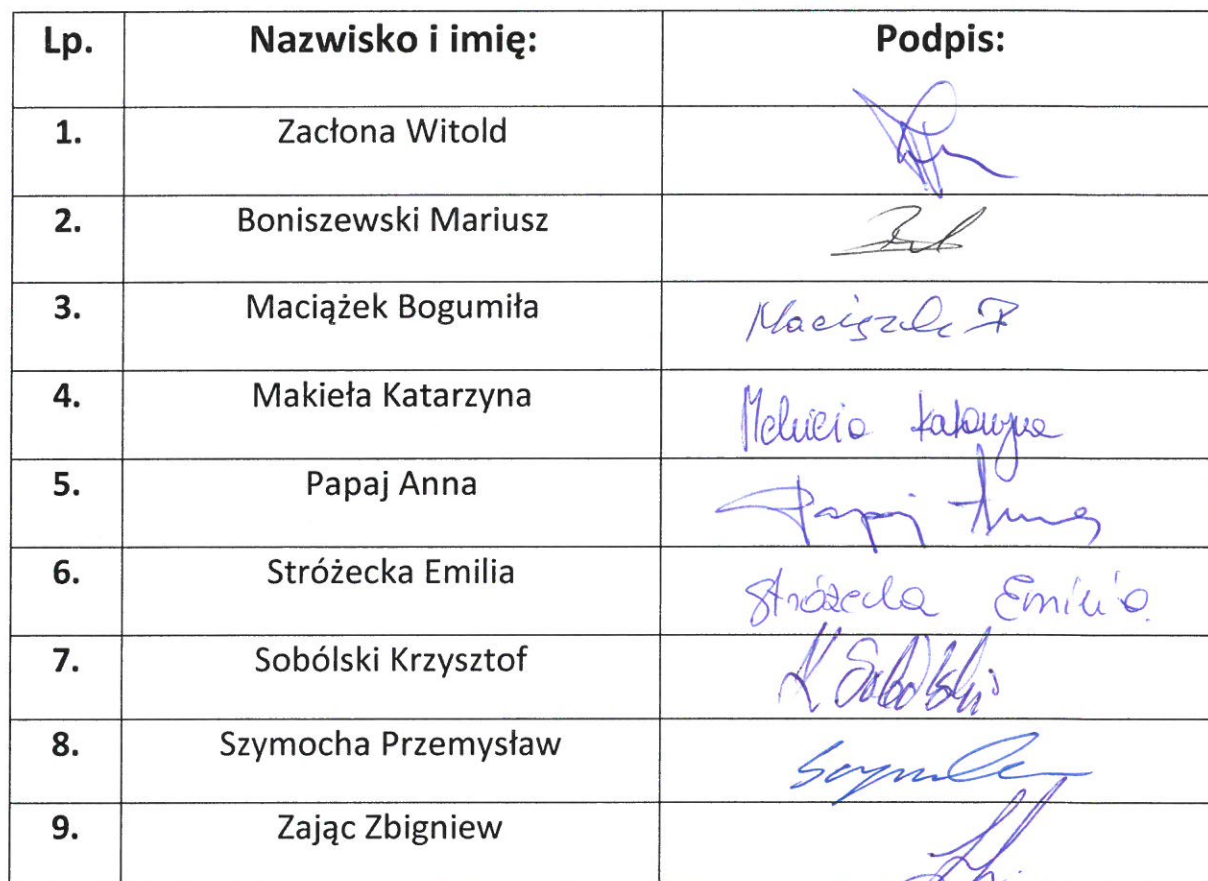 Lp. Nazwisko i imię: Podpis:
1. Zacłona Witold
2. Boniszewski Mariusz
3. Maciążek Bogumiła
4. Makieła Katarzyna
5. Papaj Anna Papaj Anna
6. Stróżecka Emilia Stróżecka Emilia
7. Sobólski Krzysztof K Sobólski
8. Szymocha Przemysław
9. Zając Zbigniew